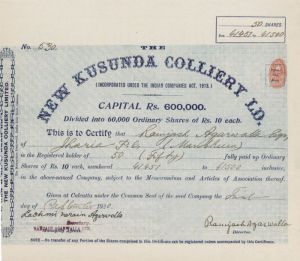 50 SHARES
Nos 41451 - 41500
No. 530
THE
NEW KUSUNDA COLLIERY LD.
(INCORPORATED UNDER THE INDIAN COMPANIES ACT, 1913.)
CAPITAL Rs. 600,000.
Divided into 60,000 Ordinary Shares of Rs. 10 each.
This is to Certify that Ramjash Agarwalla Esq
of Jharia
is the Registered holder of 50 (Fifty) fully paid up Ordinary
Shares of Rs. 10 each, numbered 41451 to 41500 inclusive,
in the above-named Company, subject to the Memorandum and Articles of Association thereof.
Given at Calcutta under the Common Seal of the said Company the
day of 1930.
Lachmi Narain Agarwalla
Ramjash Agarwalla
Director.
NOTE.—No transfer of any Portion of the Shares comprised in this Certificate can be registered unless accompanied by this Certificate.
THE NEW KUSUNDA COLLIERY LIMITED